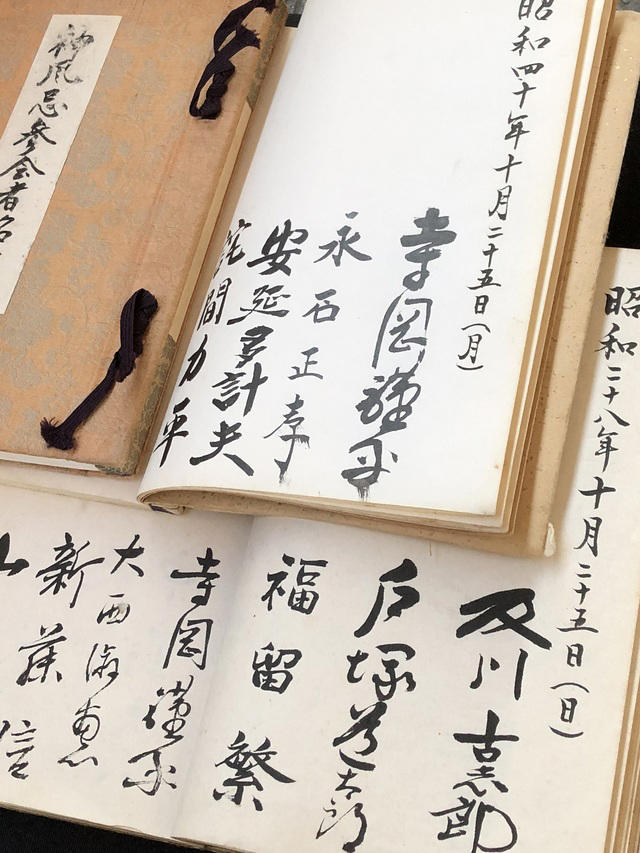 神風忌参会者名
昭和四十年十月二十五日(月)
寺岡謹平
永石正孝
安延多計夫
詫間力平
昭和二十八年十月二十五日(日)
及川古志郎
戸塚道太郎
福留繁
寺岡謹平
大西淑惠
新藤信
山